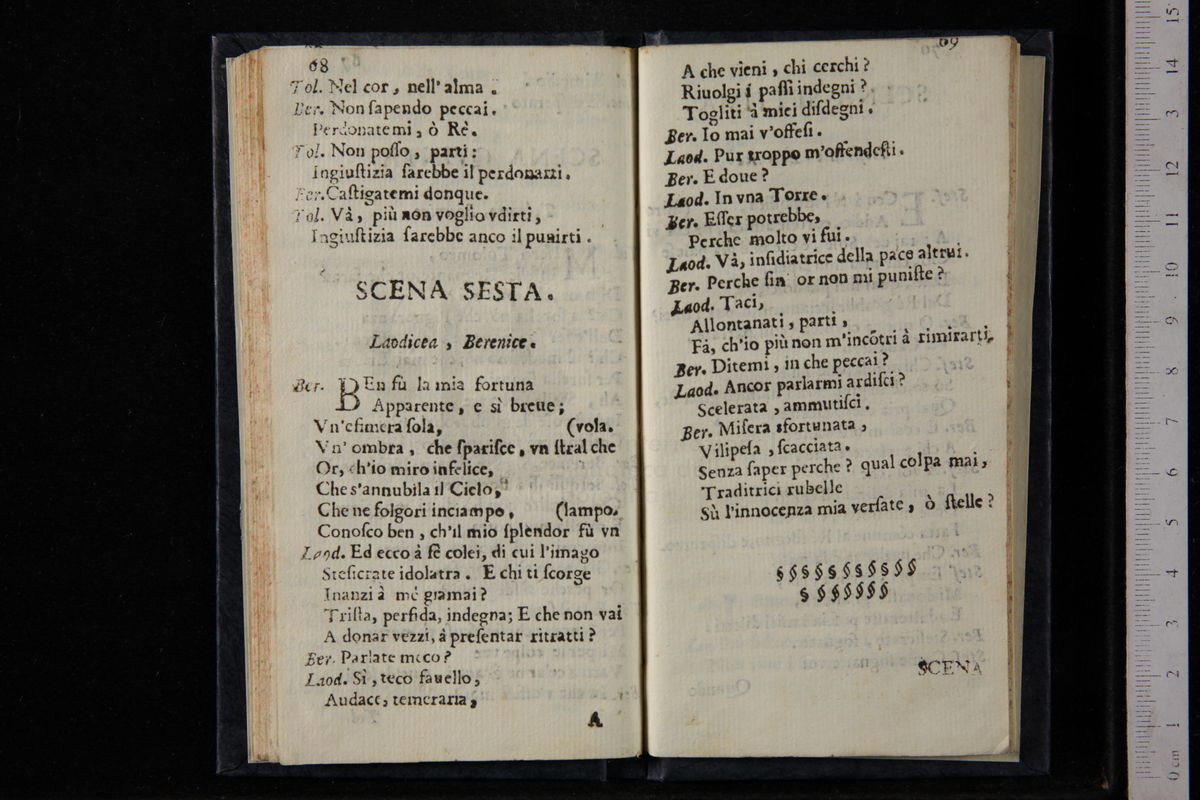 68
Tol. Nel cor, nell'alma.
Ber. Non ſapendo peccai.
Perdonatemi, ò Rè.
Tol. Non poſſo, parti:
Ingiuſtizia ſarebbe il perdonarti.
Ber. Caſtigatemi donque.
Tol. Và, più non voglio vdirti,
Ingiuſtizia ſarebbe anco il punirti.
SCENA SESTA.
Laodicea, Berenice.
Ber. BEn fù la mia fortuna
Apparente, e sì breue;
Vn'efimera ſola, (vola.
Vn' ombra, che ſpariſce, vn ſtral che
Or, ch'io miro infelice,
Che s'annubila il Cielo,
Che ne folgori inciampo, (lampo.
Conoſco ben, ch'il mio ſplendor fù vn
Laod. Ed ecco à fè colei, di cui l'imago
Steſicrate idolatra. E chi ti ſcorge
Inanzi à mè giamai?
Triſta, perfida, indegna; E che non vai
A donar vezzi, à preſentar ritratti?
Ber. Parlate meco?
Laod. Sì, teco fauello,
Audace, temeraria,
A
69
A che vieni, chi cerchi?
Riuolgi i paſſi indegni?
Togliti à miei diſdegni.
Ber. Io mai v'offeſi.
Laod. Pur troppo m'offendeſti.
Ber. E doue?
Laod. In vna Torre.
Ber. Eſſer potrebbe,
Perche molto vi fui.
Laod. Và, inſidiatrice della pace altrui.
Ber. Perche ſin or non mi puniſte?
Laod. Taci,
Allontanati, parti,
Fà, ch'io più non m'incõtri à rimirarti.
Ber. Ditemi, in che peccai?
Laod. Ancor parlarmi ardiſci?
Scelerata, ammutiſci.
Ber. Miſera sfortunata,
Vilipeſa, ſcacciata.
Senza ſaper perche? qual colpa mai,
Traditrici rubelle
Sù l'innocenza mia verſate, ò ſtelle?
§§§§§§§§§§§
§§§§§§§
SCENA